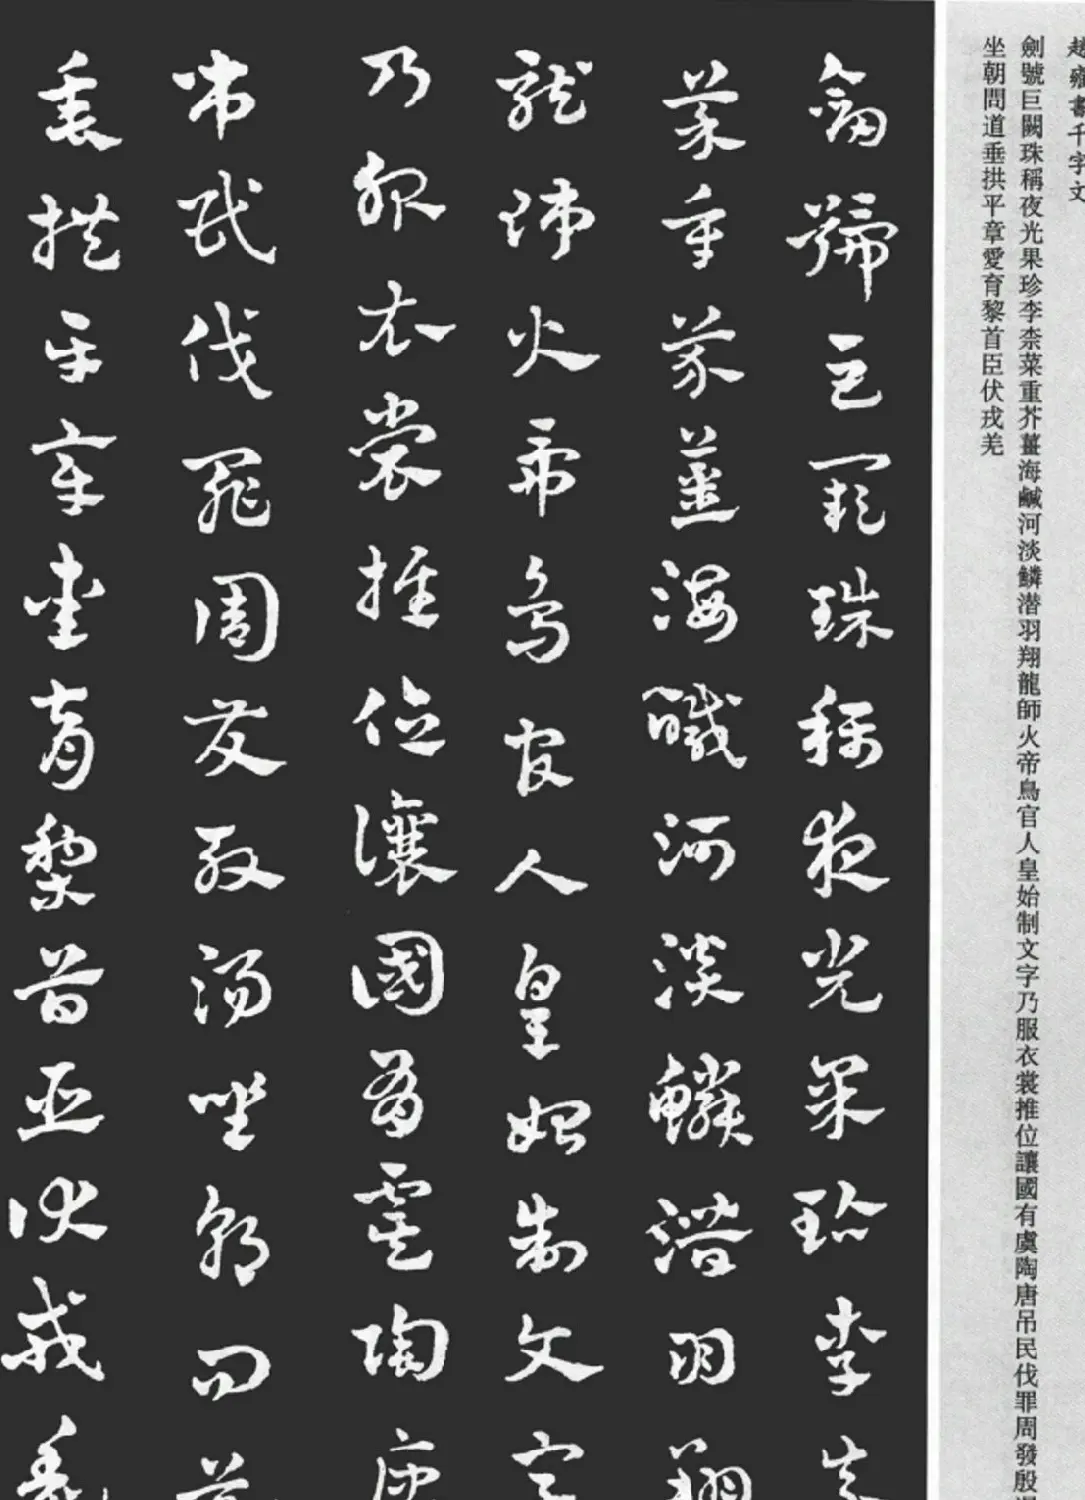 趙雍書千字文
劍號巨闕珠稱夜光果珍李柰菜重芥薑海鹹河淡鱗潜羽翔龍師火帝鳥官人皇始制文字乃服衣裳推位讓國有虞陶唐吊民伐罪周發殷湯
坐朝問道垂拱平章愛育黎首臣伏戎羌
劍號巨闕珠稱夜光果珍李柰
菜重芥薑海鹹河淡鱗潜羽翔
龍師火帝鳥官人皇始制文字
乃服衣裳推位讓國有虞陶唐
吊民伐罪周發殷湯坐朝問道
垂拱平章愛育黎首臣伏戎羌